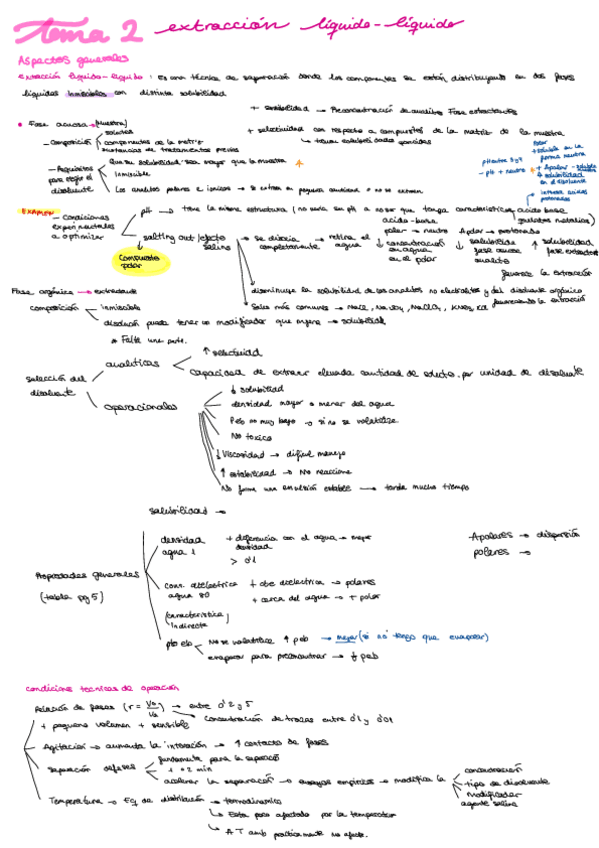 Tema 2 extracción líquido-líquido
Aspectos generales
Extracción líquido-líquido: Es una técnica de separación donde los componentes se están distribuyendo en dos fases
líquidas inmiscibles con distinta solubilidad
+ sensibilidad → Preconcentración de analitos Fase extractante
• Fase acuosa → muestra
+ selectividad con respecto a compuestos de la matriz de la muestra
→ tienen solubilidades parecidas
- Composición
solutos
componentes de la matriz
sustancias de tratamientos previos
- Requisitos para elegir el disolvente
Que su solubilidad sea mayor que la muestra
Inmiscible
Los analitos polares e iónicos → se extraen en pequeña cantidad o no se extraen
- pH + neutro
+ soluble en la forma neutra
+ Apolar
solubilidad en el disolvente
EXAMEN
- Condiciones experimentales a optimizar
pH → tiene la misma estructura (no varía su pH a no ser que tenga características ácido base
ácido-base.
polar → neutro Apolar → protonado
salting out / efecto salino → se disocia completamente → retira el agua → ↓ concentración en agua en el polar
↓ solubilidad fase acuosa analito
↑ solubilidad fase extractante
favorece la extracción
Compuesto polar
disminuye la solubilidad de los analitos no electrolitos y del disolvente orgánico
favoreciendo la extracción
Sales más comunes →
Fase orgánica → extractante
composición
inmiscible
disolución puede tener un modificador que mejora → solubilidad
* Falta una parte.
Selección del disolvente
analíticas
↑ selectividad
capacidad de extraer elevada cantidad de soluto por unidad de disolvente
operacionales
↓ solubilidad
densidad mayor o menor del agua
Peb no muy bajo → si no se volatiliza
No tóxico
↓ Viscosidad → difícil manejo
↑ estabilidad → No reaccione
No forme una emulsión estable → tarda mucho tiempo
solubilidad →
Propiedades generales
(tabla pg 5)
densidad agua 1
+ diferencia con el agua → mejor densidad
> 0'1
Apolares → dispersión
polares →
cons. dieléctrica agua 80
+ cte dieléctrica → polares
+ cerca del agua → + polar
(característica indirecta
pto eb
No se volatilice ↑ peb → mejor (si no tengo que evaporar)
evaporar para preconcentrar → ↓ peb
condiciones técnicas de operación
Relación de fases → entre 0'2 y 5
→ Concentración de trazas entre 0'1 y 0'01
+ pequeño volumen + sensible
Agitación → aumenta la interacción → ↑ contacto de fases
Separación de fases
fundamente para la separación
+ o 2 min
acelerar la separación → ensayos empíricos → modifica la
concentración
tipo de disolvente
modificador
agente salino
Temperatura → Eq de distribución → termodinámico
→ Está poco afectado por la temperatura
→ A T amb prácticamente no afecta.